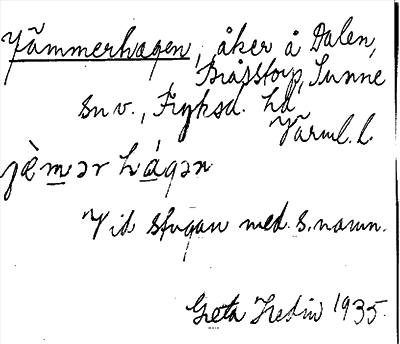 Jämmerhagen, åker å Dalen,
Blåsstorp, Sunne
sn v., Fryksd. hd
Värml. l.
jæ̀mər hágən
Vid stugan med s. namn.
Greta Hedin 1935.